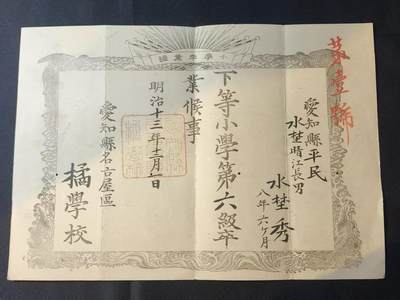 第壹號
愛知縣平民
水埜晴江長男
水埜秀
八年六ケ月
下等小學第六級卒
業候事
明治十三年十二月一日
愛知縣名古屋區
橘學校